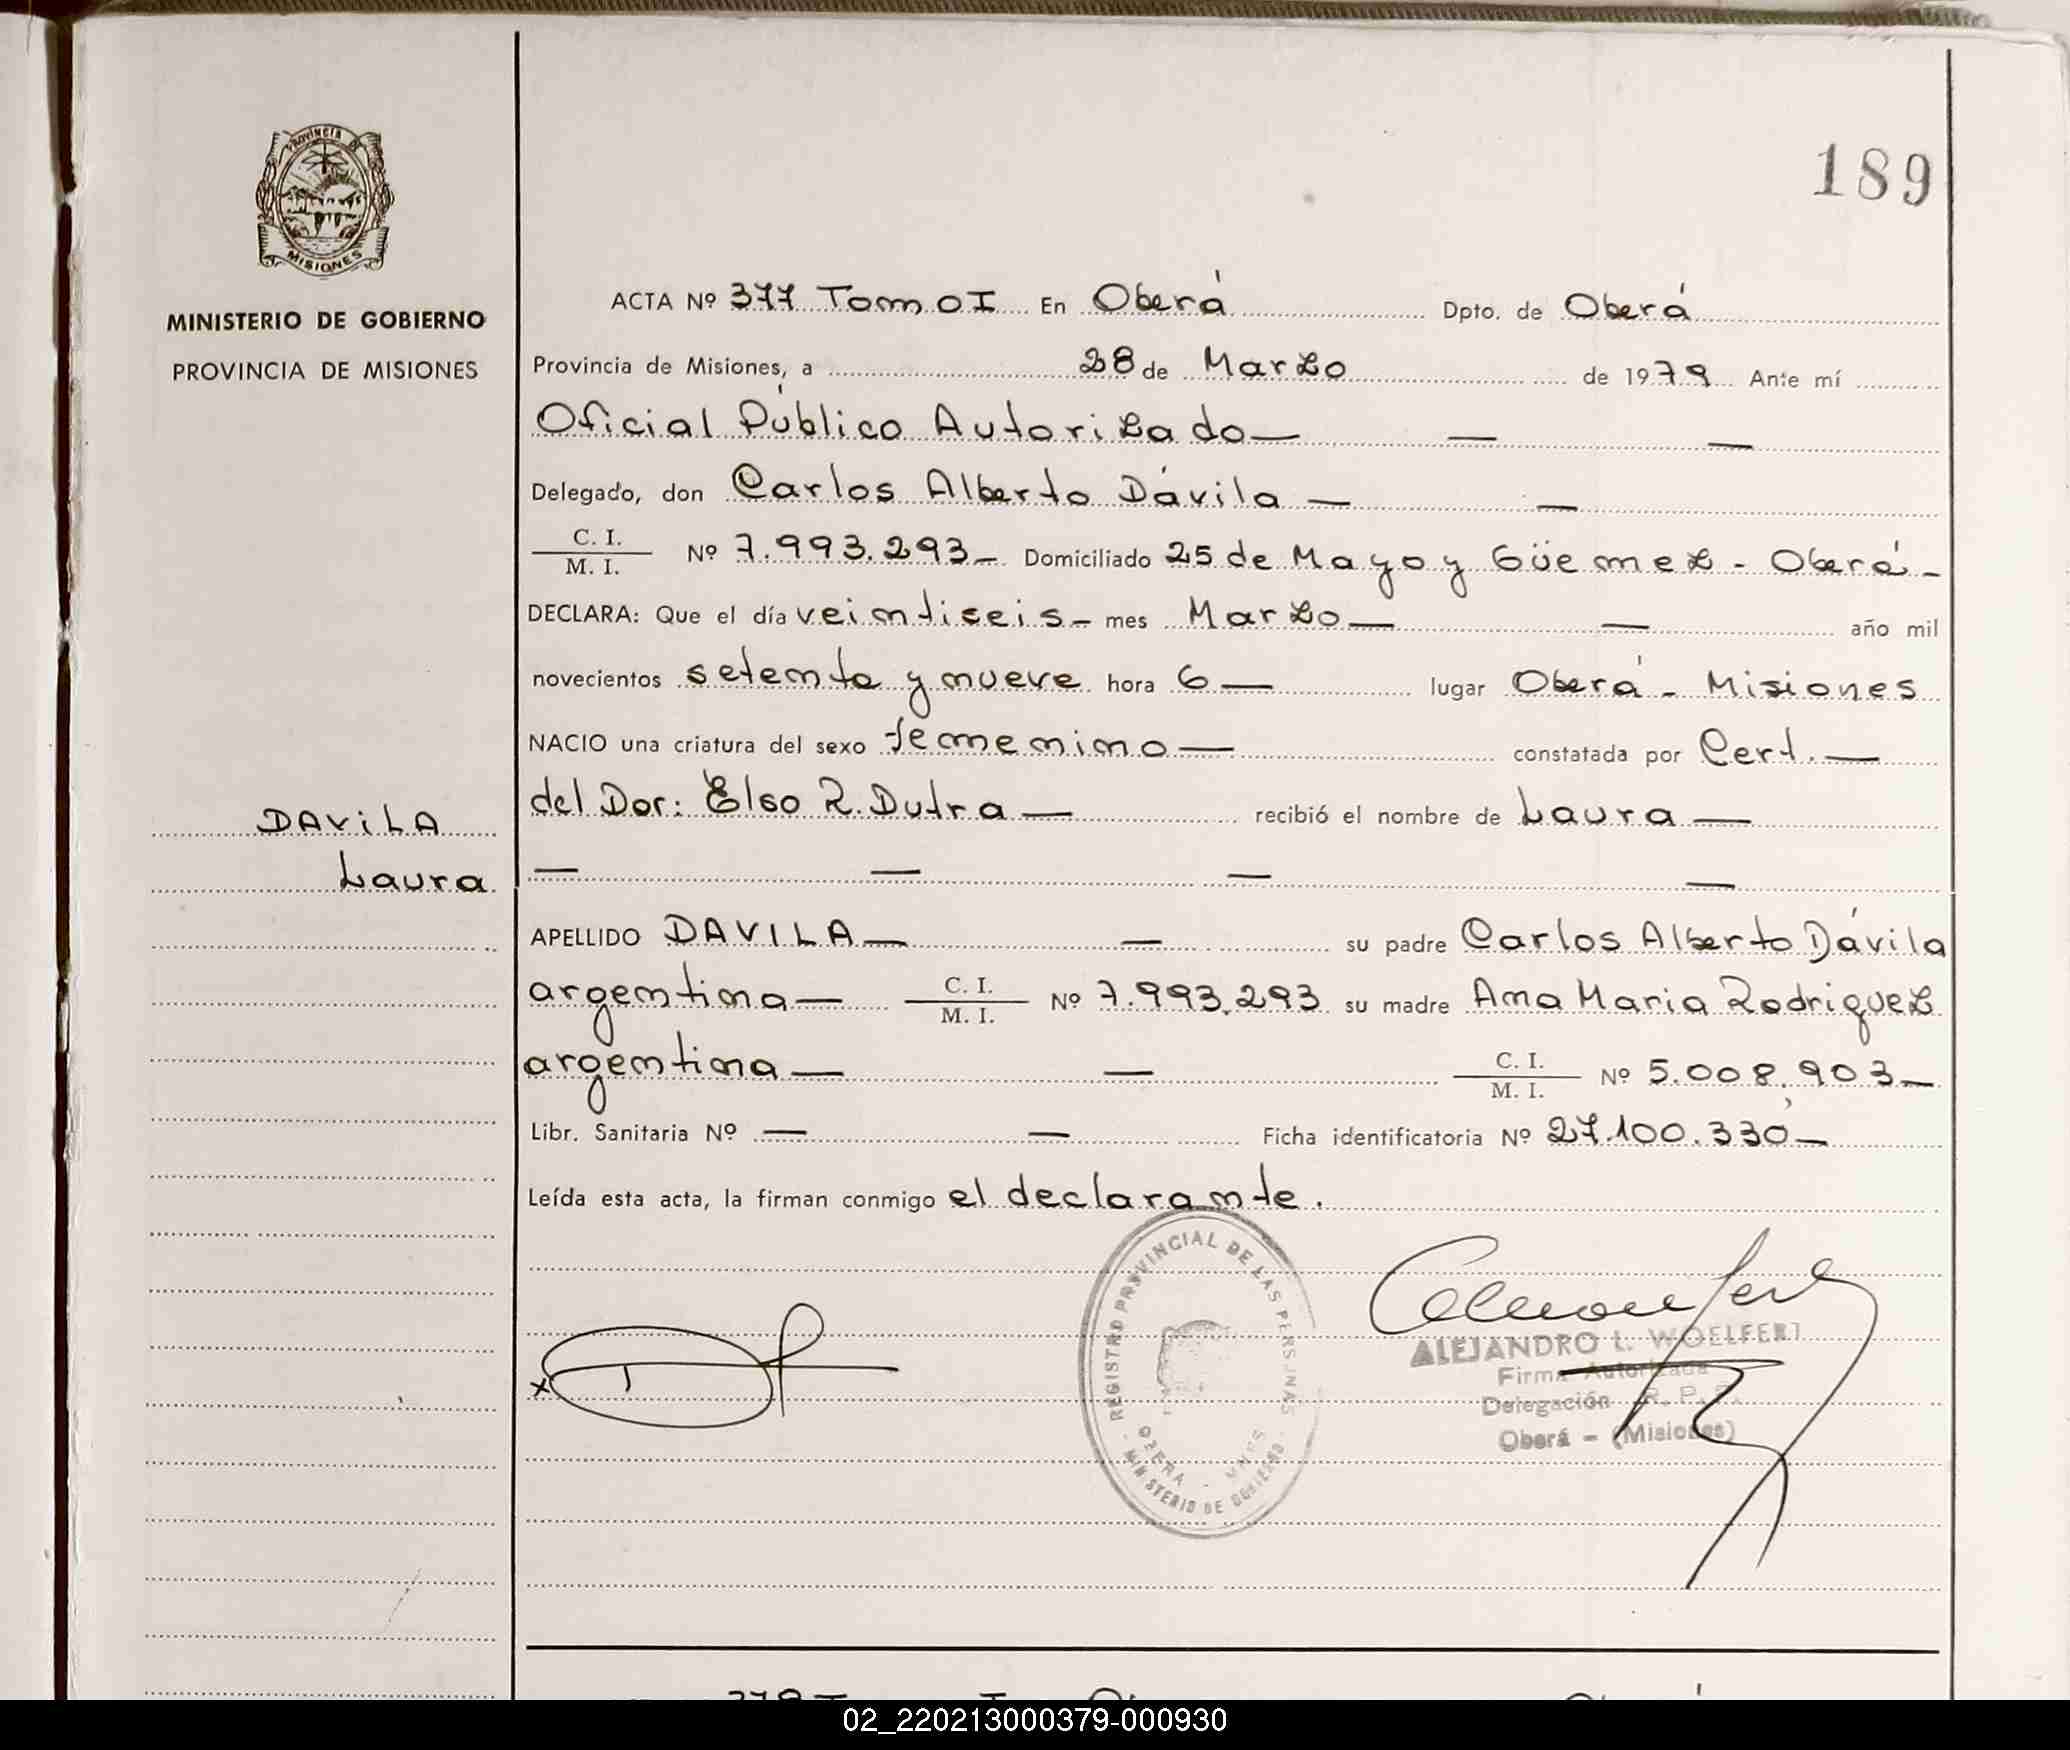 PROVINCIA DE
MISIONES
MINISTERIO DE GOBIERNO
PROVINCIA DE MISIONES
189
ACTA Nº 377 Tomo I En Oberá Dpto. de Oberá
Provincia de Misiones, a 28 de Marzo de 1979 Ante mí
Oficial Público Autorizado — — —
Delegado, don Carlos Alberto Dávila — —
C. I.
M. I. Nº 7.993.293 - Domiciliado 25 de Mayo y Güemez - Oberá -
DECLARA: Que el día veintiseis - mes Marzo — — año mil
novecientos setenta y nueve hora 6 — lugar Oberá - Misiones
NACIO una criatura del sexo femenino — constatada por Cert. —
del Dor: Elso R. Dutra — recibió el nombre de Laura —
— — — —
DAViLA
Laura
APELLIDO DAVILA — — su padre Carlos Alberto Dávila
argentina — C. I.
M. I. Nº 7.993.293 su madre Ana Maria Rodriguez
argentina — — C. I.
M. I. Nº 5.008.903 —
Libr. Sanitaria Nº — — Ficha identificatoria Nº 27.100.330 —
Leída esta acta, la firman conmigo el declarante.
REGISTRO PROVINCIAL DE LAS PERSONAS
OBERA - MNES
MINISTERIO DE GOBIERNO
ALEJANDRO L. WOELFERT
Firma Autorizada
Delegación R. P. P.
Oberá - (Misiones)
02_220213000379-000930